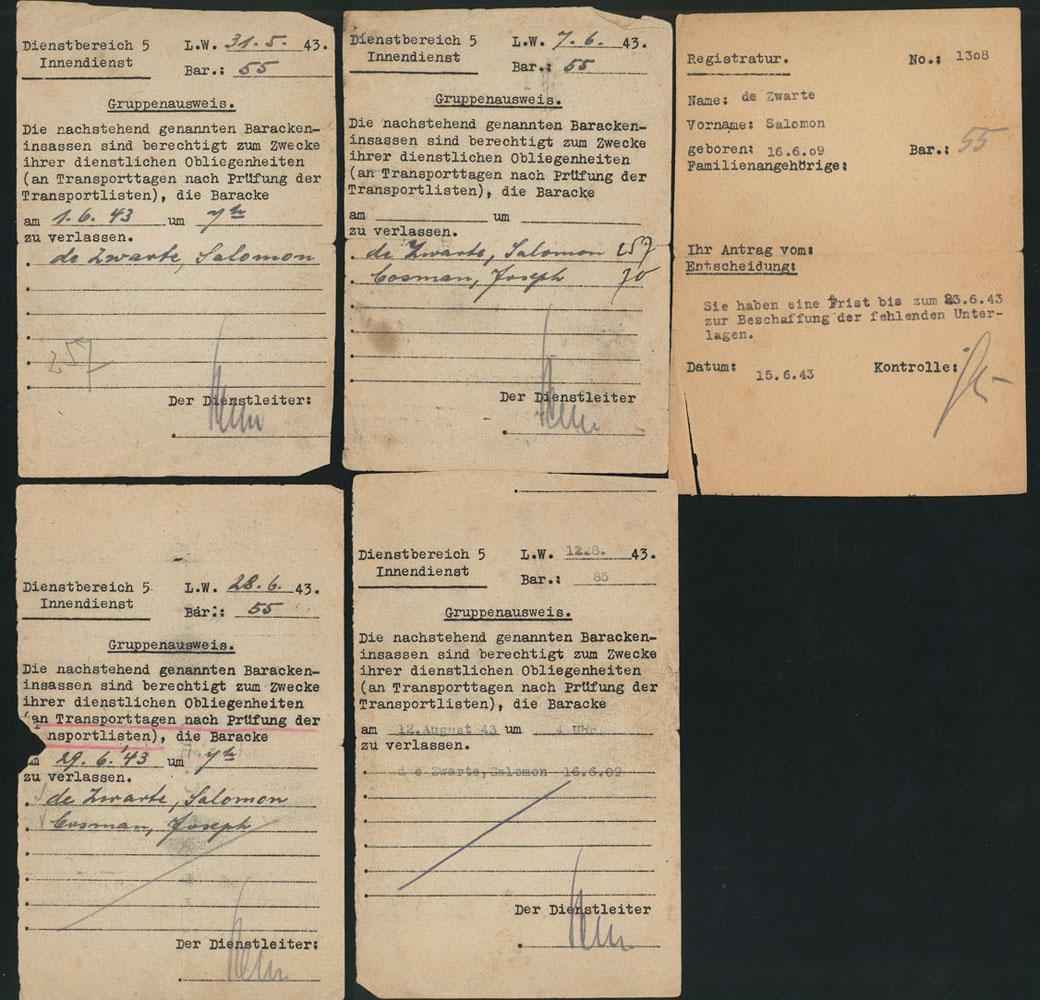 Dienstbereich 5 L.W. 31.5. 43.
Innendienst Bar.: 55
Gruppenausweis.
Die nachstehend genannten Baracken-
insassen sind berechtigt zum Zwecke
ihrer dienstlichen Obliegenheiten
(an Transporttagen nach Prüfung der
Transportlisten), die Baracke
am 1.6.43 um
zu verlassen.
de Zwarte, Salomon
257
Der Dienstleiter:
Dienstbereich 5 L.W. 7.6. 43.
Innendienst Bar.: 55
Gruppenausweis.
Die nachstehend genannten Baracken-
insassen sind berechtigt zum Zwecke
ihrer dienstlichen Obliegenheiten
(an Transporttagen nach Prüfung der
Transportlisten), die Baracke
am um
zu verlassen.
de Zwarte, Salomon 257
Cosman, Joseph 70
Der Dienstleiter
Registratur. No.: 1308
Name: de Zwarte
Vorname: Salomon
geboren: 16.6.09 Bar.: 55
Familienangehörige:
Ihr Antrag vom:
Entscheidung:
Sie haben eine Frist bis zum 23.6.43
zur Beschaffung der fehlenden Unter-
lagen.
Datum: 15.6.43 Kontrolle:
Dienstbereich 5 L.W. 28.6. 43.
Innendienst Bar.: 55
Gruppenausweis.
Die nachstehend genannten Baracken-
insassen sind berechtigt zum Zwecke
ihrer dienstlichen Obliegenheiten
(an Transporttagen nach Prüfung der
nsportlisten), die Baracke
29.6.'43 um
zu verlassen.
de Zwarte, Salomon
Cosman, Joseph
Der Dienstleiter:
Dienstbereich 5 L.W. 12.8. 43.
Innendienst Bar.: 85
Gruppenausweis.
Die nachstehend genannten Baracken-
insassen sind berechtigt zum Zwecke
ihrer dienstlichen Obliegenheiten
(an Transporttagen nach Prüfung der
Transportlisten), die Baracke
am 12.August 43 um 4 Uhr
zu verlassen.
d e Zwarte,Salomon 16.6.09
Der Dienstleiter